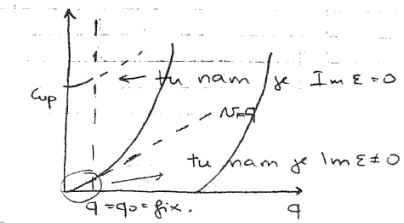 tu nam je Im ε = 0
ωp
tu nam je Im ε ≠ 0
q = q0 = fix.
q